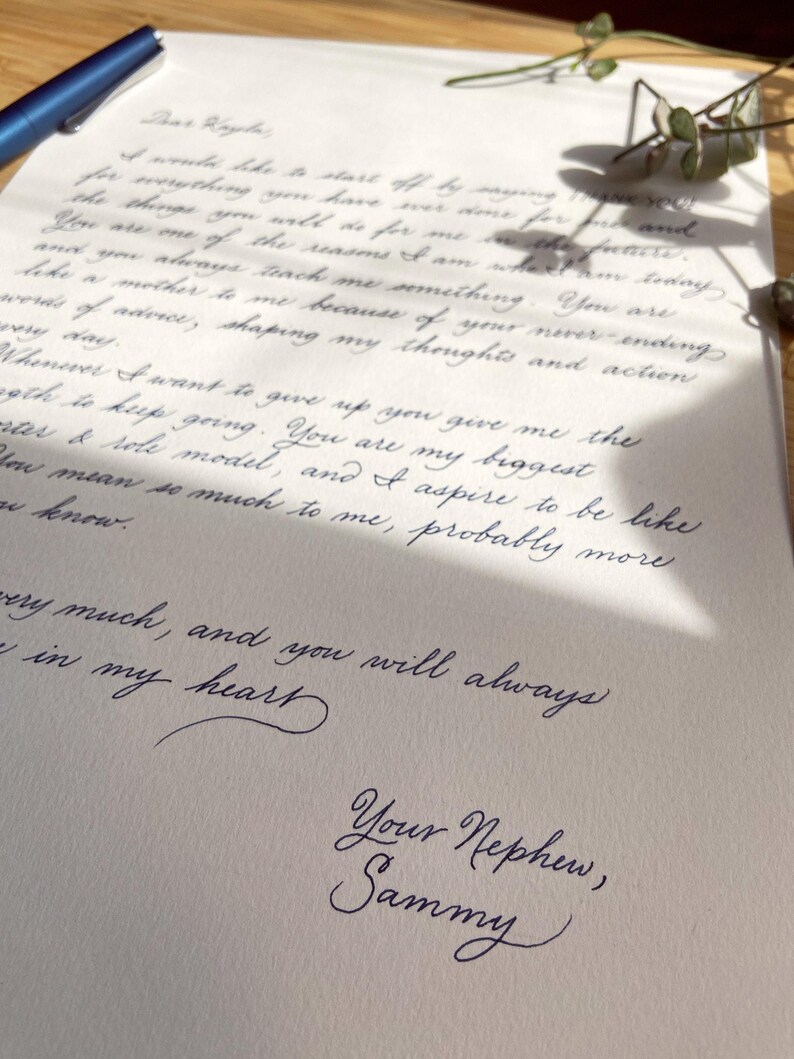 Dear Kayla,
I would like to start off by saying THANK YOU!
for everything you have ever done for me and
the things you will do for me in the future.
You are one of the reasons I am who I am today,
and you always teach me something. You are
like a mother to me because of your never-ending
words of advice, shaping my thoughts and action
very day.
Whenever I want to give up you give me the
ngth to keep going. You are my biggest
rter & role model, and I aspire to be like
You mean so much to me, probably more
u know.
very much, and you will always
in my heart
Your Nephew,
Sammy